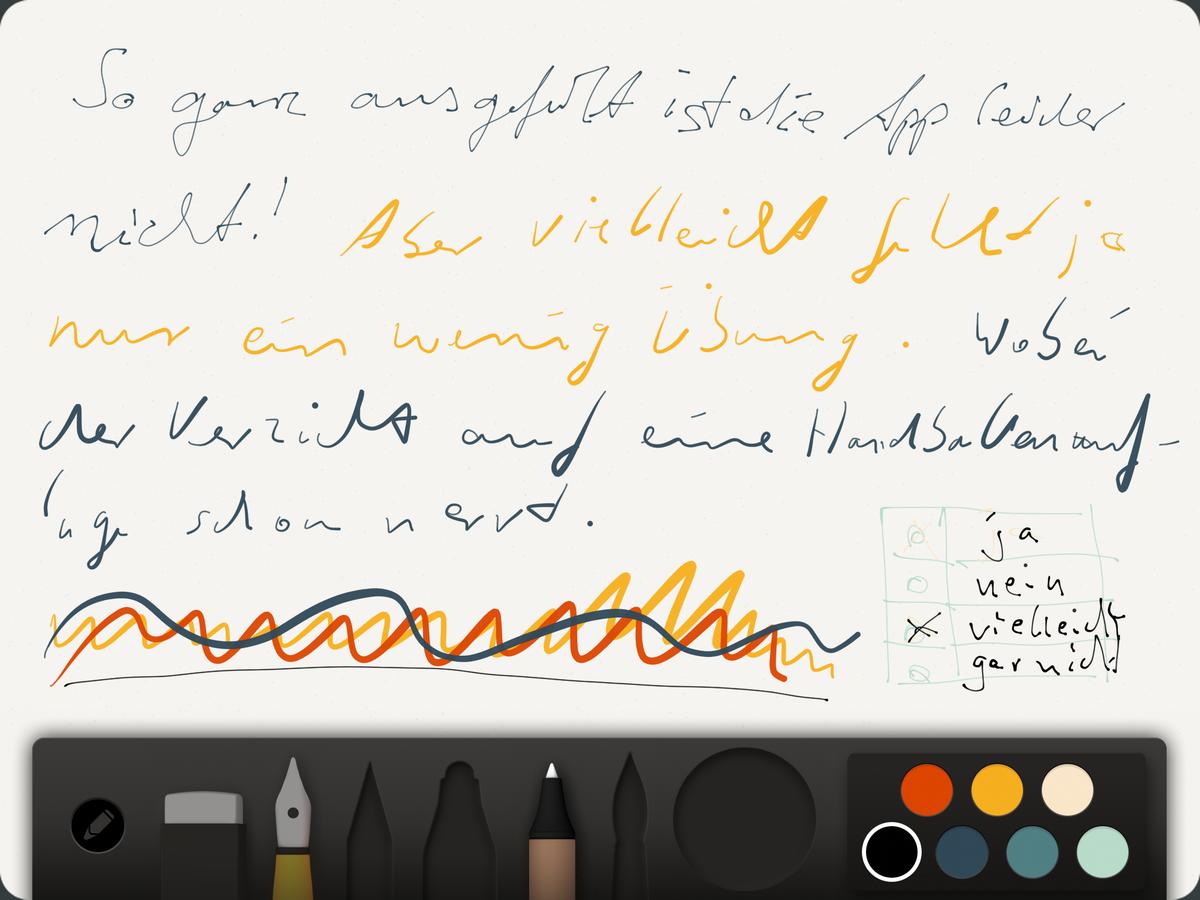 So ganz ausgefüllt ist die App leider
nicht! Aber vielleicht fehlt ja
nur ein wenig Übung. Wobei
der Verzicht auf eine Handballenauf-
lage schon nervt.
ja
nein
vielleicht
gar nicht